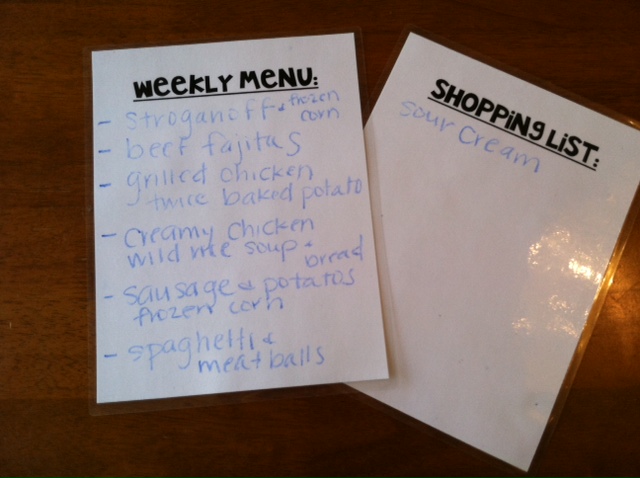 WEEKLY MENU:
- stroganoff & frozen
corn
- beef fajitas
- grilled chicken
twice baked potato
- creamy chicken
wild rice soup &
bread
- sausage & potatos
frozen corn
- spaghetti &
meatballs
SHOPPING LIST:
sour cream